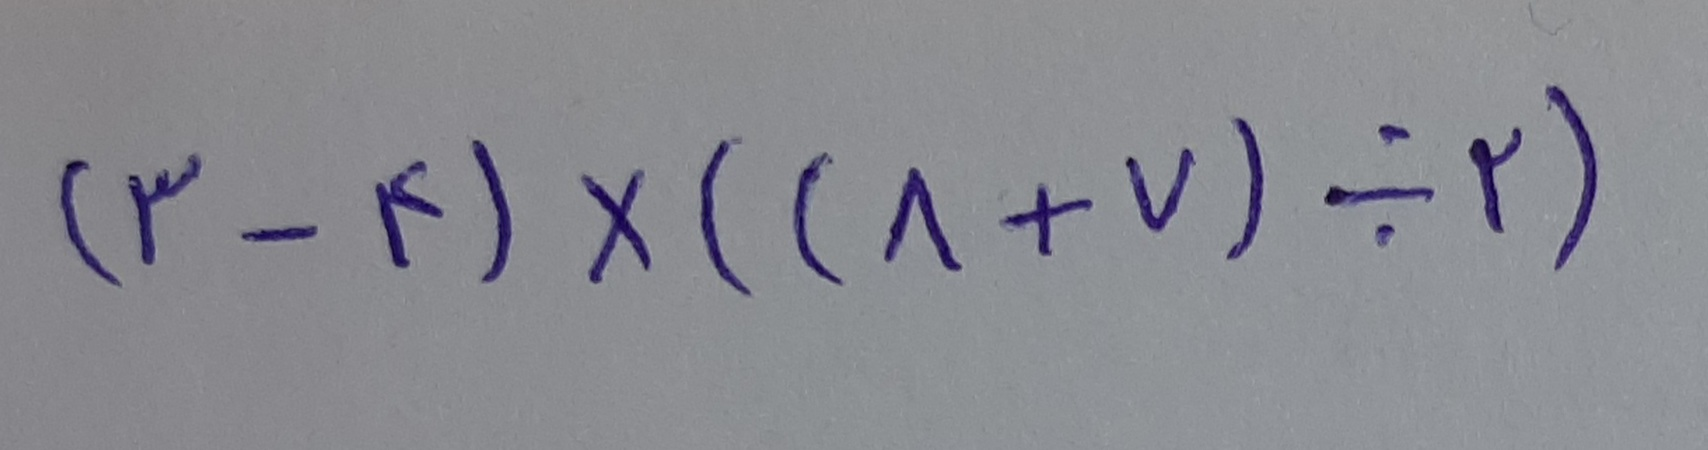 (۳ - ۴) × ((۸ + ۷) ÷ ۲)